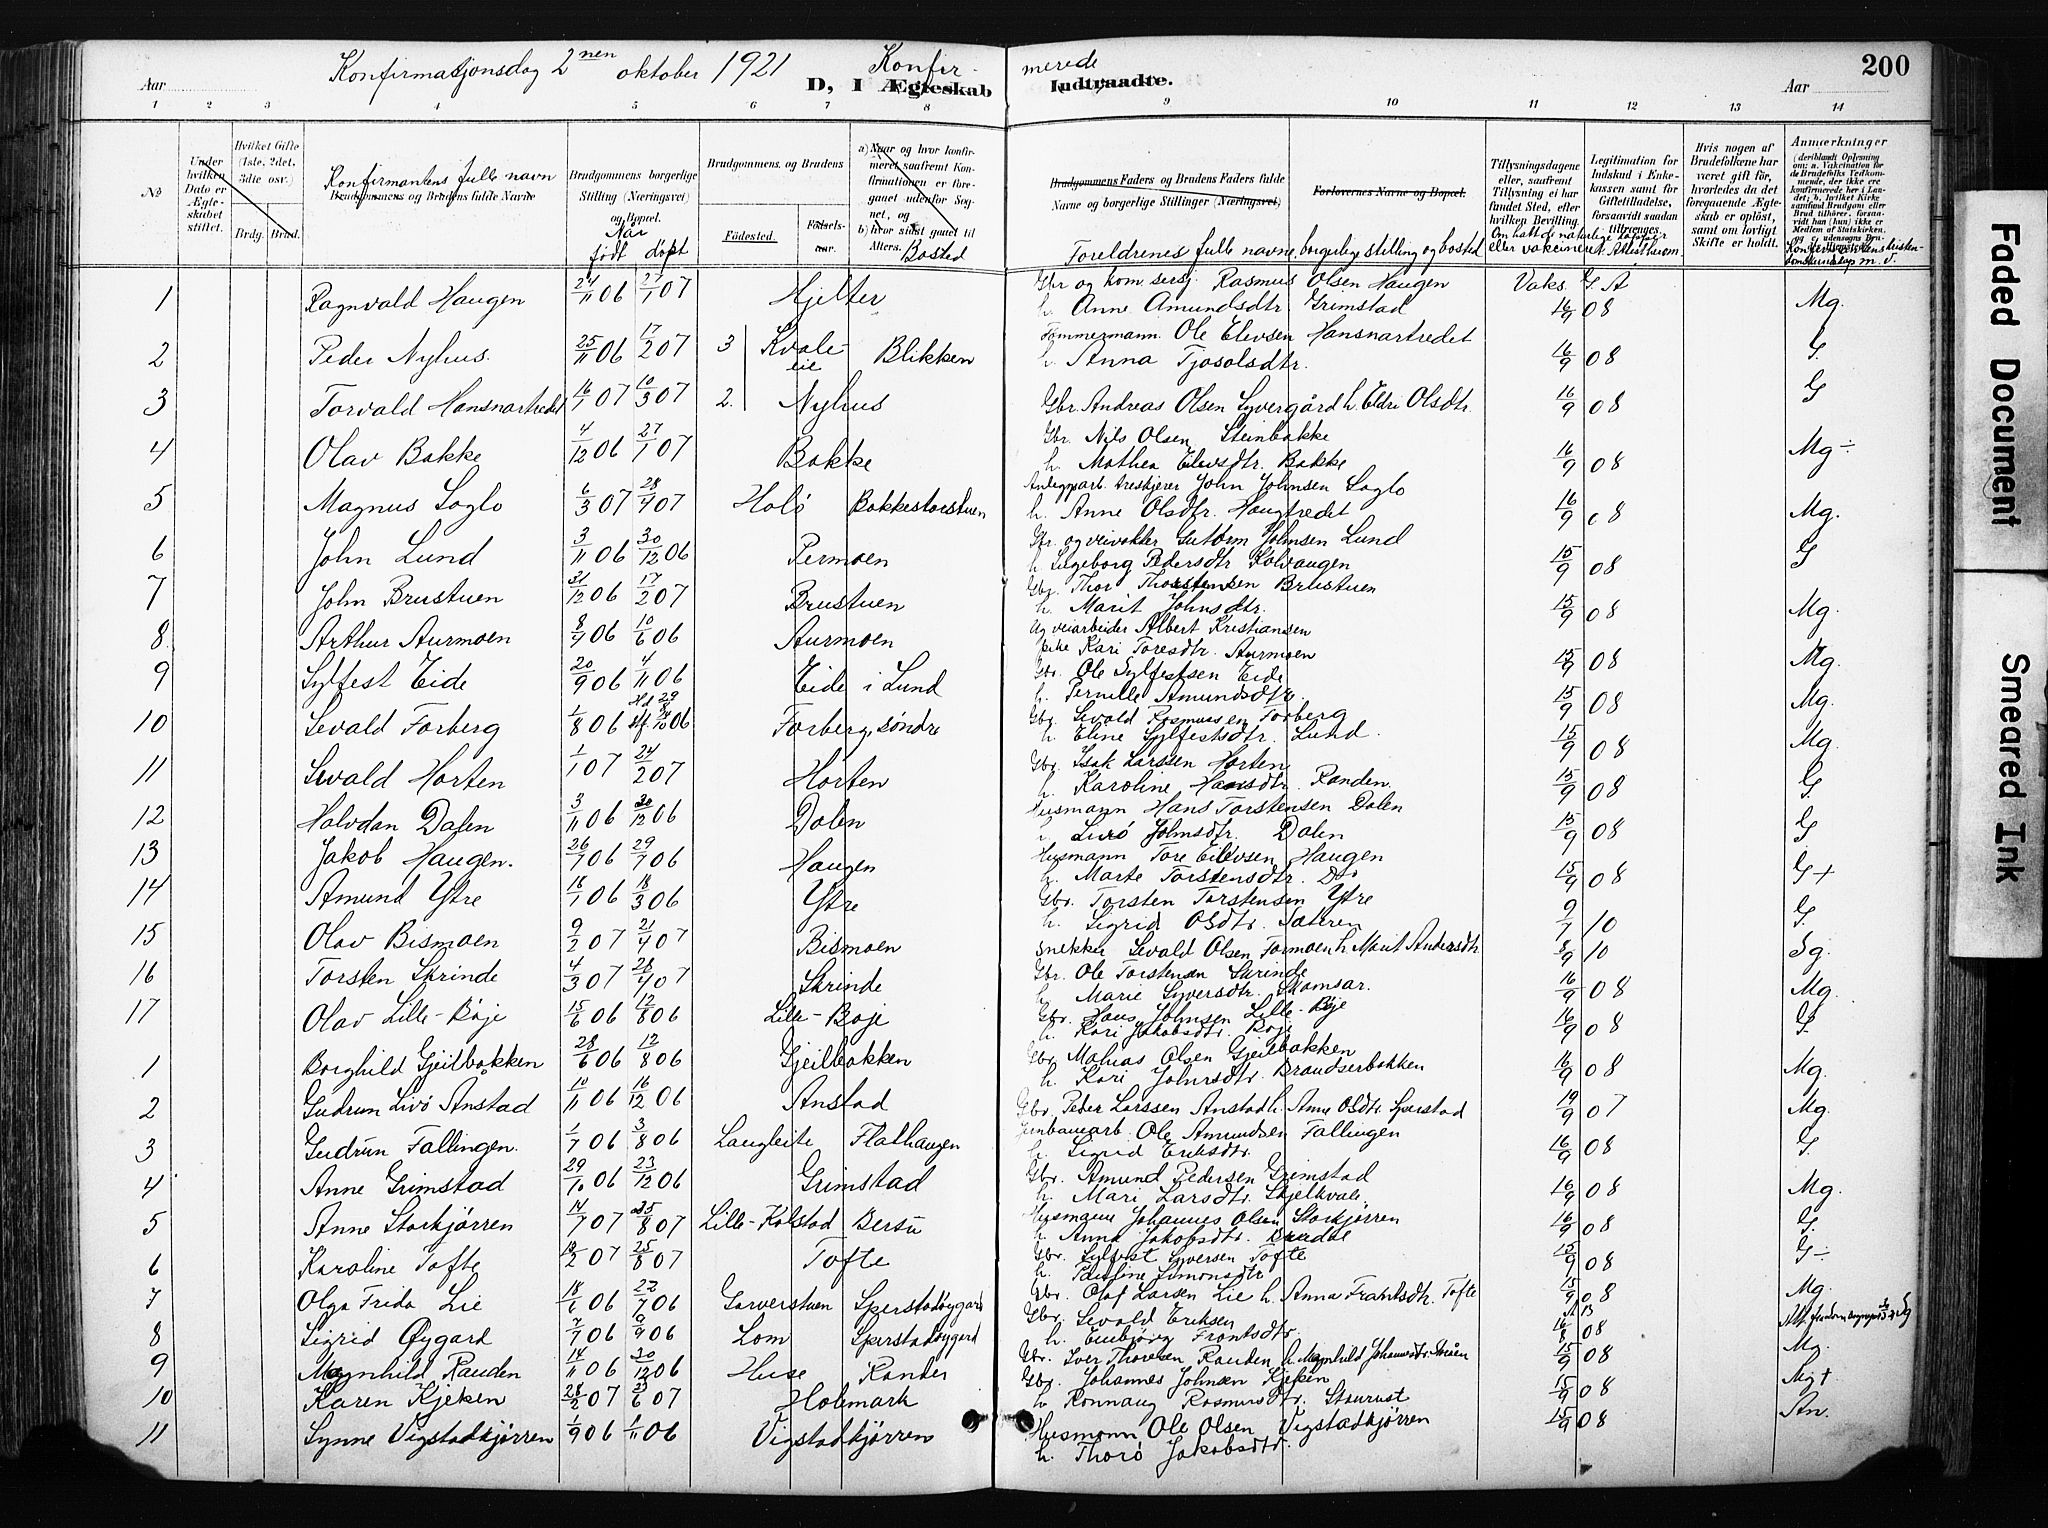 Konfirmasjonsdag 2nen oktober 1921 Konfir- merede 200
Aar D, I Ægteskab Indtraadte. Aar
1 2 3 4 5 6 7 8 9 10 11 12 13 14
No
Under hvilken Dato er Ægteskabet stiftet.
Hvilket Gifte (1ste, 2det, 3die osv.)
Brdg. Brud.
Konfirmantens fulle navn
Brudgommens og Brudens fulde Navne
Brudgommens borgerlige Stilling (Næringsvei) og Bopæl.
Når født døpt
Brudgommens og Brudens
Fødested. Fødsels-aar.
a) Naar og hvor konfirmeret saafremt Konfirmationen er foregaaet udenfor Sognet, og b) hvor sidst gaaet til Alters.
Bosted
Brudgommens Faders og Brudens Faders fulde Navne og borgerlige Stillinger (Næringsvei)
Forlovernes Navne og Bopæl.
Foreldrenes fulle navne, borgerlige stilling og bosted
Tillysningsdagene eller, saafremt Tillysning ei har fundet Sted, efter hvilken Bevilling
Legitimation for Indskud i Enkekassen samt for Giftetilladelse, forsaavidt saadan tiltrænges.
Hvis nogen af Brudefolkene har været gift før, hvorledes da det foregaaende Ægteskab er opløst, samt om lovligt Skifte er holdt.
Anmærkninger
1 Ragnvald Haugen 24/11 06 27/1 07 Hjelter Gbr og kom. sersj. Rasmus Olsen Haugen Vaks. G. A
h. Anne Amundsdtr. Grimstad 16/9 08 Mg.
2 Peder Nyhus. 25/11 06 17/2 07 3 Kvale-eie Blikken Tømmermann Ole Elevsen Hansnartredet
h. Anna Tjosolsdtr. 16/9 08 G.
3 Torvald Hansnartredet 16/1 07 10/3 07 2. Nyhus Gbr. Andreas Olsen Syvergård h. Eldri Olsdtr. 16/9 08 G
4 Olav Bakke 4/12 06 27/1 07 Bakke Gbr. Nils Olsen Steinbakke
h. Mathea Elevsdtr. Bakke 16/9 08 Mg ÷
5 Magnus Soglo 6/3 07 28/4 07 Holø Bakkestorstuen Anleggsarb. treskjerer John Johnsen Soglo
h. Anne Olsdtr. Haugtredet 16/9 08 Mg.
6 John Lund 3/11 06 30/12 06 Permoen Gbr og veivokter Guttorm Johnsen Lund
h. Ingeborg Pedersdtr Kolvangen 15/9 08 G
7 John Brustuen 31/12 06 17/2 07 Brustuen Gbr. Thor Thorstensen Brustuen
h. Marit Johnsdtr. 15/9 08 Mg.
8. Arthur Aurmoen 8/4 06 10/6 06 Aurmoen Ug veiarbeider Albert Kristiansen
pike Kari Toresdtr. Aurmoen 15/9 08 Mg.
9 Sylfest Eide 20/9 06 4/11 06 Eide i Lund Gbr. Ole Sylfestsen Eide
h. Pernille Amundsdtr. 15/9 08 Mg.
10 Sevald Forberg 1/8 06 Forberg, søndre Gbr. Sevald Rasmussen Forberg
h. Eline Sylfestsdtr. Lund. 15/9 08 Mg.
11 Sevald Horten 1/1 07 24/2 07 Horten Gbr. Isak Larssen Horten
h. Karoline Hansdtr. Randen. 15/9 08 G
12 Halvdan Dalen 3/11 06 30/12 06 Dalen Husmann Hans Torstensen Dalen
h. Livø Johnsdtr. Dalen 15/9 08 G
13 Jakob Haugen. 26/7 06 29/7 06 Haugen Husmann Tore Eilevsen Haugen
h. Marte Torstensdtr. Do 15/9 08 G+
14 Amund Ytre 18/1 06 18/3 06 Ytre Gbr. Torsten Torstensen Ytre
h. Sigrid Olsdtr. Sæteren 9/7 10 G.
15 Olav Bismoen 9/2 07 21/4 07 Bismoen Snekker Sevald Olsen Formoen h. Marit Andersdtr. 8/9 10 Sg.
16 Torsten Skrinde 4/3 07 28/4 07 Skrinde Gbr. Ole Torstensen Skrinde
h. Marie Syversdtr. Skamsar. 16/9 08 Mg.
17 Olav Lille-Bøje 15/6 06 12/8 06 Lille-Bøje Gbr. Hans Johnsen Lille-Bøje
h. Kari Jakobsdtr. Bøje 16/9 08 G.
1 Borghild Gjeilbakken 28/6 06 12/8 06 Gjeilbakken Gbr. Mathias Olsen Gjeilbakken
h. Kari Johnsdtr. Brandserbakken 16/9 08 Mg.
2 Gudrun Livø Anstad 10/11 06 16/12 06 Anstad Gbr. Peder Larssen Anstad h. Anne Olsdtr. Sperstad 19/9 07 Mg.
3 Gudrun Fallingen. 1/7 06 3/8 06 Laugleite Flathaugen Jernbanearb. Ole Amundsen Fallingen
h. Sigrid Eriksdtr. 16/9 08 G.
4 Anne Grimstad 29/10 06 23/12 06 Grimstad Gbr. Amund Pedersen Grimstad
h. Mari Larsdtr. Skjelkvale 16/9 08 Mg.
5 Anne Storkjørren 14/7 07 25/8 07 Lille-Kolstad Bersu Husmann Johannes Olsen Storkjørren
h. Anna Jakobsdtr. 16/9 08 G.
6 Karoline Tofte 18/2 07 25/8 07 Tofte Gbr. Sylfest Syversen Tofte
h. Pauline Simonsdtr 15/9 08 G÷
7 Olga Frida Lie 18/6 06 22/7 06 Garverstuen Sperstadøygard Gbr. Olaf Larsen Lie h. Anna Frantsdtr. Tofte 15/9 08 Mg.
8 Sigrid Øygard 7/7 06 9/9 06 Lom Sperstadøygard Gbr. Sevald Eriksen
h. Embjørg Frantsdtr. 16/8 08
9 Magnhild Randen 14/11 06 30/12 06 Huse Randen Gbr. Iver Thoresen Randen h. Magnhild Johannesdtr. 15/9 08 Mg.
10 Karen Kjeken 28/2 07 23/6 07 Holemark Gbr. Johannes Johnsen Kjeken
h. Rønnaug Rasmusdtr. Staurust 15/9 08 Mg+
11 Synne Vigstadkjørren 1/9 06 1/11 06 Vigstadkjørren Husmann Ole Olsen Vigstadkjørren 15/9 08 An.
h. Thorø Jakobsdtr.
Faded Document
Smeared Ink